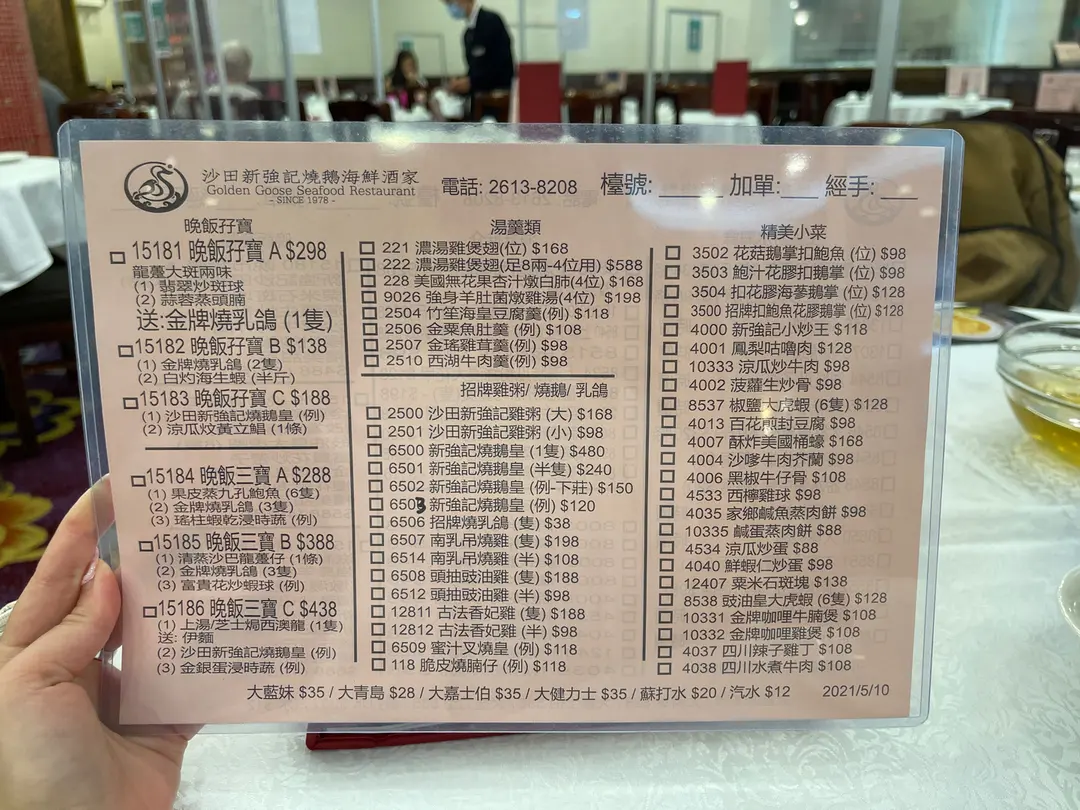 沙田新強記燒鵝海鮮酒家
Golden Goose Seafood Restaurant
- SINCE 1978 -
電話: 2613-8208 檯號: 加單: 經手:
晚飯孖寶
15181 晚飯孖寶 A $298
龍躉大斑兩味
(1) 翡翠炒斑球
(2) 蒜蓉蒸頭腩
送:金牌燒乳鴿 (1隻)
15182 晚飯孖寶 B $138
(1) 金牌燒乳鴿 (2隻)
(2) 白灼海生蝦 (半斤)
15183 晚飯孖寶 C $188
(1) 沙田新強記燒鵝皇 (例)
(2) 涼瓜炆黃立鯧 (1條)
15184 晚飯三寶 A $288
(1) 果皮蒸九孔鮑魚 (6隻)
(2) 金牌燒乳鴿 (3隻)
(3) 瑤柱蝦乾浸時蔬 (例)
15185 晚飯三寶 B $388
(1) 清蒸沙巴龍躉仔 (1條)
(2) 金牌燒乳鴿 (3隻)
(3) 富貴花炒蝦球 (例)
15186 晚飯三寶 C $438
(1) 上湯/芝士焗西澳龍 (1隻)
送: 伊麵
(2) 沙田新強記燒鵝皇 (例)
(3) 金銀蛋浸時蔬 (例)
湯羹類
221 濃湯雞煲翅(位) $168
222 濃湯雞煲翅(足8兩-4位用) $588
228 美國無花果杏汁燉白肺(4位) $168
9026 強身羊肚菌燉雞湯(4位) $198
2504 竹笙海皇豆腐羹(例) $118
2506 金粟魚肚羹(例) $108
2507 金瑤雞茸羹(例) $98
2510 西湖牛肉羹(例) $98
招牌雞粥/ 燒鵝/ 乳鴿
2500 沙田新強記雞粥 (大) $168
2501 沙田新強記雞粥 (小) $98
6500 新強記燒鵝皇 (1隻) $480
6501 新強記燒鵝皇 (半隻) $240
6502 新強記燒鵝皇 (例-下莊) $150
6503 新強記燒鵝皇 (例) $120
6506 招牌燒乳鴿 (隻) $38
6507 南乳吊燒雞 (隻) $198
6514 南乳吊燒雞 (半) $108
6508 頭抽豉油雞 (隻) $188
6512 頭抽豉油雞 (半) $98
12811 古法香妃雞 (隻) $188
12812 古法香妃雞 (半) $98
6509 蜜汁叉燒皇 (例) $118
118 脆皮燒腩仔 (例) $118
精美小菜
3502 花菇鵝掌扣鮑魚 (位) $98
3503 鮑汁花膠扣鵝掌 (位) $98
3504 扣花膠海參鵝掌 (位) $128
3500 招牌扣鮑魚花膠鵝掌 (位) $128
4000 新強記小炒王 $118
4001 鳳梨咕嚕肉 $128
10333 涼瓜炒牛肉 $98
4002 菠蘿生炒骨 $98
8537 椒鹽大虎蝦 (6隻) $128
4013 百花煎封豆腐 $98
4007 酥炸美國桶蠔 $168
4004 沙嗲牛肉芥蘭 $98
4006 黑椒牛仔骨 $108
4533 西檸雞球 $98
4035 家鄉鹹魚蒸肉餅 $98
10335 鹹蛋蒸肉餅 $88
4534 涼瓜炒蛋 $88
4040 鮮蝦仁炒蛋 $98
12407 粟米石斑塊 $138
8538 豉油皇大虎蝦 (6隻) $128
10331 金牌咖哩牛腩煲 $108
10332 金牌咖哩雞煲 $108
4037 四川辣子雞丁 $108
4038 四川水煮牛肉 $108
大藍妹 $35 / 大青島 $28 / 大嘉士伯 $35 / 大健力士 $35 / 蘇打水 $20 / 汽水 $12 2021/5/10